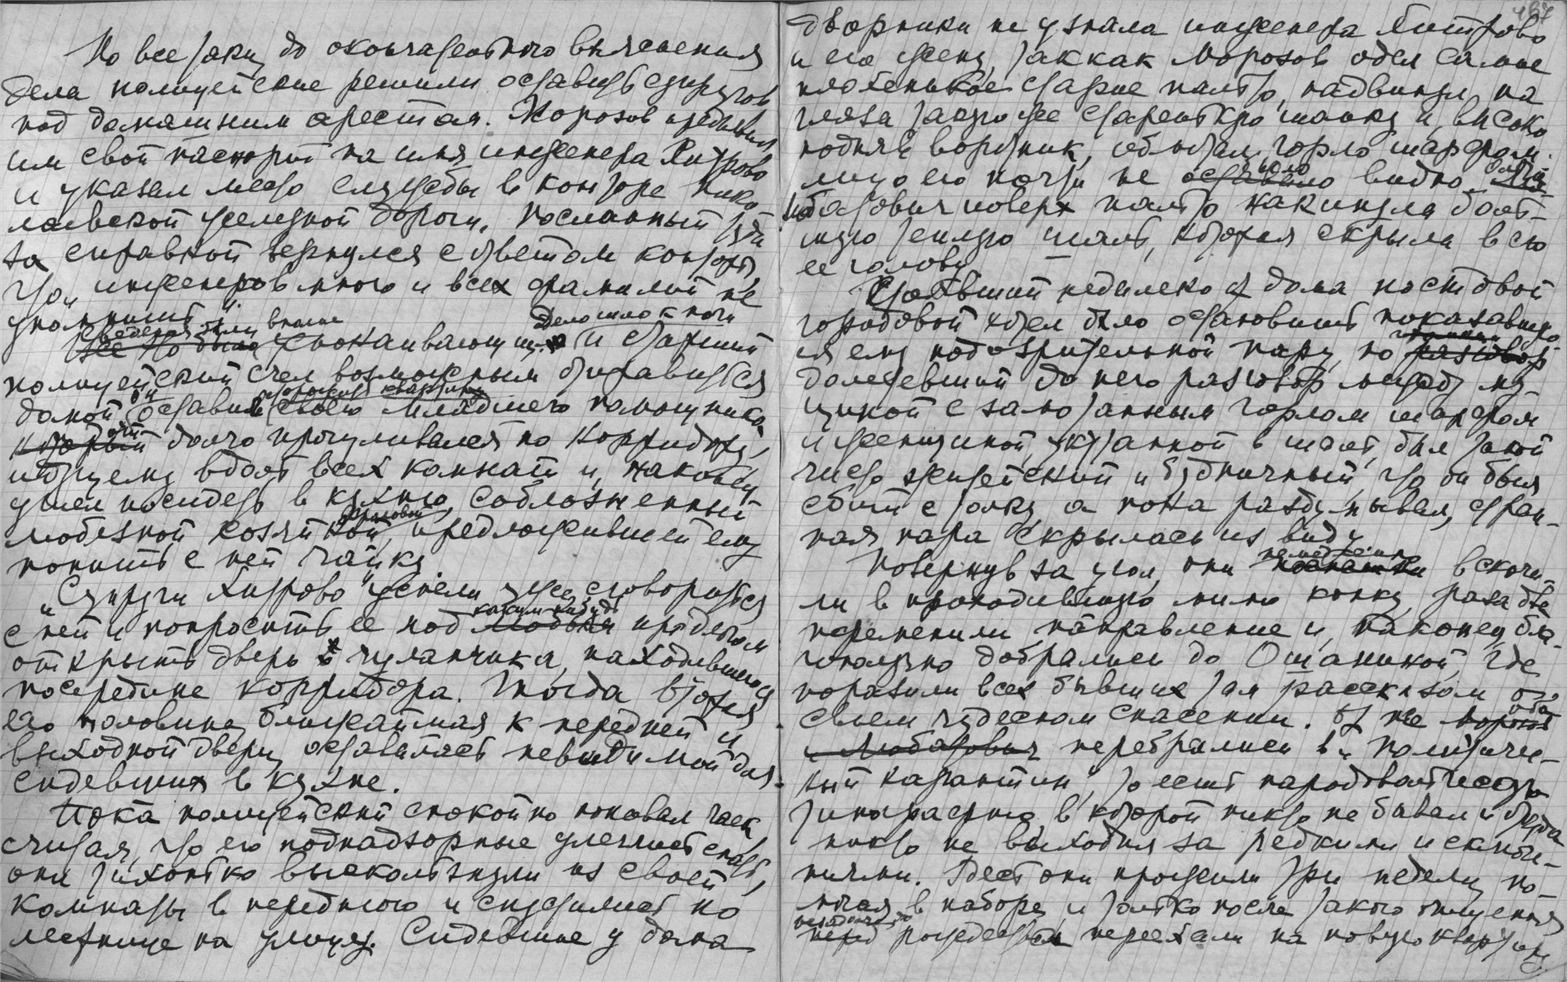 Но все таки, до окончательного выяснения
дела полицейские решили оставить супругов
под домашним арестом. Морозов предъявил
им свой паспорт на имя инженера Хитрово
и указал место службы в конторе Нико-
лаевской железной дороги. Посланный туда
за справкой вернулся с ответом конторы,
что инженеров много и всех фамилий не
упомнишь.
Сведения были вполне успокаивающие. Дело шло к ночи и старший
полицейский счел возможным отправиться
домой оставив своего младшего помощника.
который долго прогуливался по корридору,
идущему вдоль всех комнат и, наконец,
ушел посидеть в кухню, соблазненный
любезной хозяйкой, предложившей ему
попить с ней чайку.
"Супруги Хитрово" успели уже сговориться
с ней и попросить ее под каким-нибудь предлогом
открыть дверь чуланчика, находившегося
посредине корридора. Тогда вторая
его половина, ближайшая к передней и
выходной двери, оставалась невидимой для
сидевших в кухне.
Пока полицейский спокойно попивал чаек,
считая, что его поднадзорные улеглись спать,
они тихонько выскользнули из своей
комнаты в переднюю и спустились по
лестнице на улицу. Сидевшие у дома
487
дворники не узнали инженера Хитрово
и его жены, так как Морозов одел самое
плохенькое старое пальто, надвинул на
глаза такую же старенькую шапку и, высоко
подняв воротник, обвязал горло шарфом.
лицо его почти не было видно.
Любатович поверх пальто накинула боль-
шую теплую шаль, которая скрыла всю
ее голову.
Стоявший недалеко от дома постовой
городовой хотел было остановить показавшую-
ся ему подозрительной пару, но
долетевший до него разговор между му-
щиной с замотанным горлом шарфом
и женщиной, укутанной в шаль, был такой
чисто житейский и будничный, что он был
сбит с толку, а пока раздумывал, стран-
ная пара скрылась из виду.
Повернув за угол, они немедленно вскочи-
ли в проходившую мимо конку, раза два
переменили направление и, наконец, бла-
гополучно добрались до Ошаниной, где
поразили всех бывших там рассказом о
своем чудесном спасении. От нее оба
перебрались в "политиче-
ный карантин", то есть народовольческую
типографию в которой никто не бывал и откуда
никто не выходил за редкими исключе-
ниями. Здесь они прожили три недели, по-
могая в наборе, и только после такого очищения
незадолго до рождества переехали на новую квартиру.